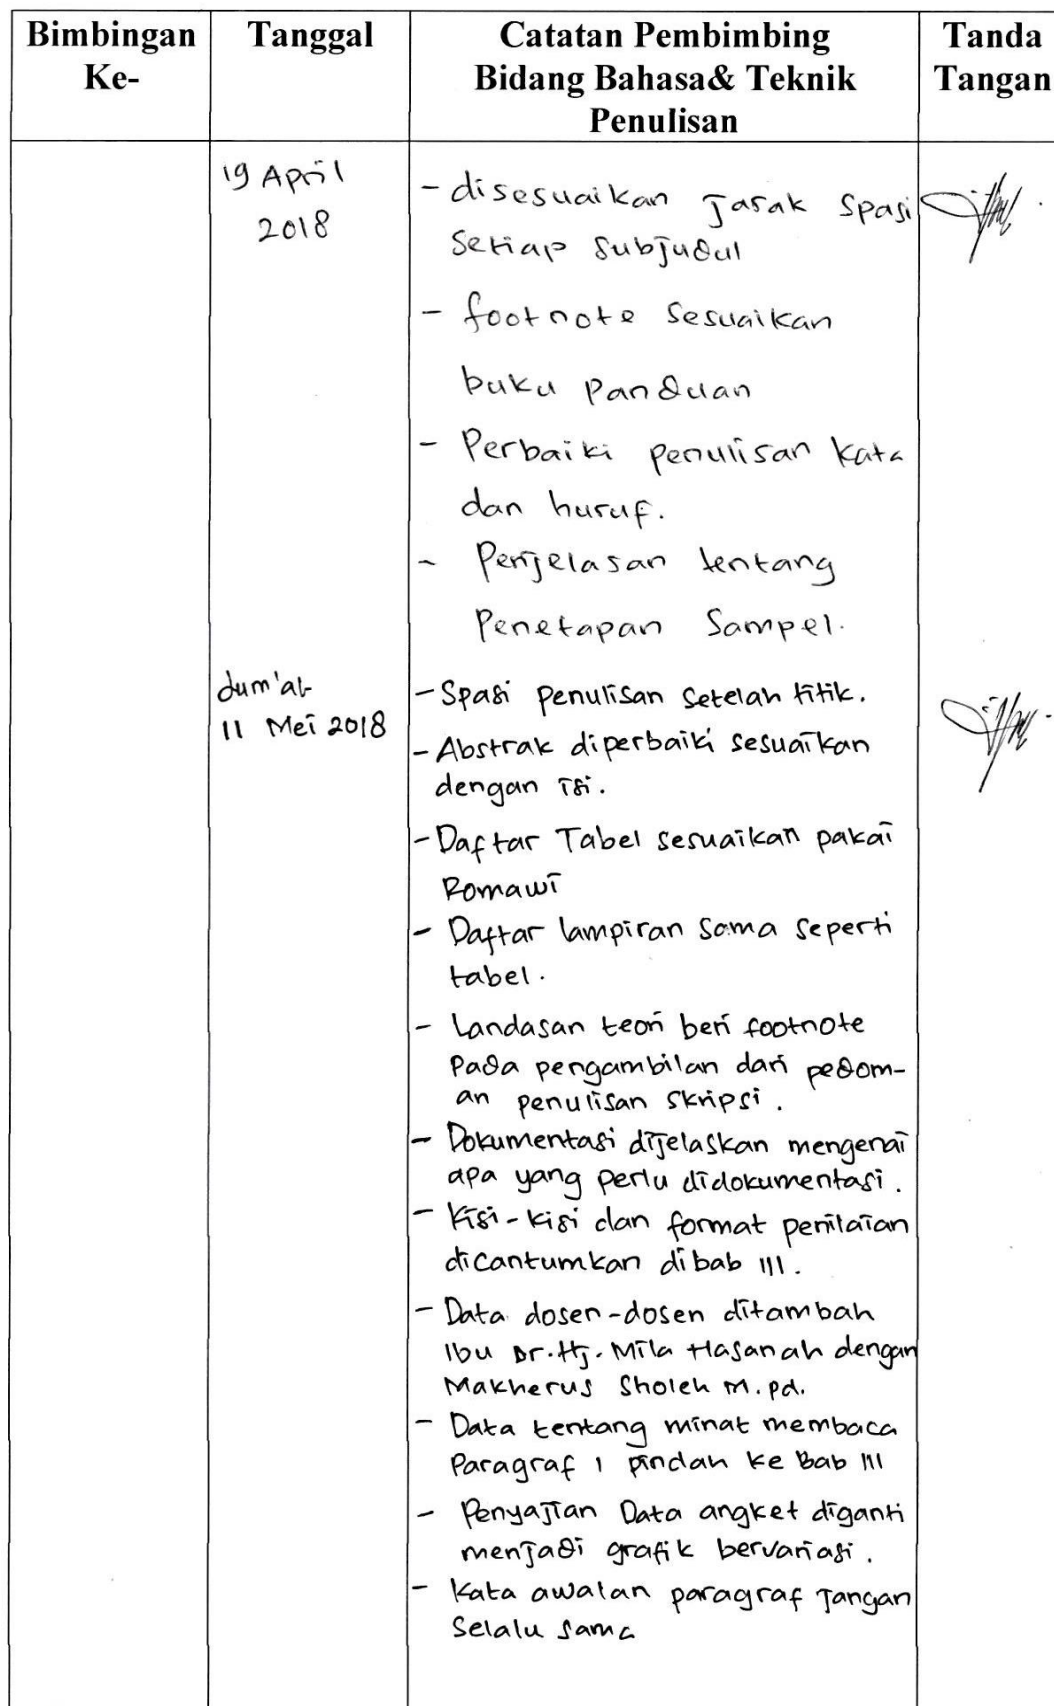 Bimbingan Ke-
Tanggal
Catatan Pembimbing
Bidang Bahasa& Teknik
Penulisan
Tanda Tangan
19 April
2018
- disesuaikan jarak spasi
setiap subjudul
- footnote sesuaikan
buku panduan
- Perbaiki penulisan kata
dan huruf.
- Penjelasan tentang
Penetapan Sampel.
Jum'at
11 Mei 2018
- Spasi penulisan setelah titik.
- Abstrak diperbaiki sesuaikan
dengan isi.
- Daftar Tabel sesuaikan pakai
Romawi
- Daftar lampiran sama seperti
tabel.
- Landasan teori beri footnote
pada pengambilan dari pedom-
an penulisan skripsi.
- Dokumentasi dijelaskan mengenai
apa yang perlu didokumentasi.
- Kisi-kisi dan format penilaian
dicantumkan dibab III.
- Data dosen-dosen ditambah
Ibu Dr. Hj. Mila Hasanah dengan
Makherus Sholeh M.pd.
- Data tentang minat membaca
Paragraf 1 pindah ke Bab III
- Penyajian Data angket diganti
menjadi grafik bervariasi.
- Kata awalan paragraf jangan
selalu sama